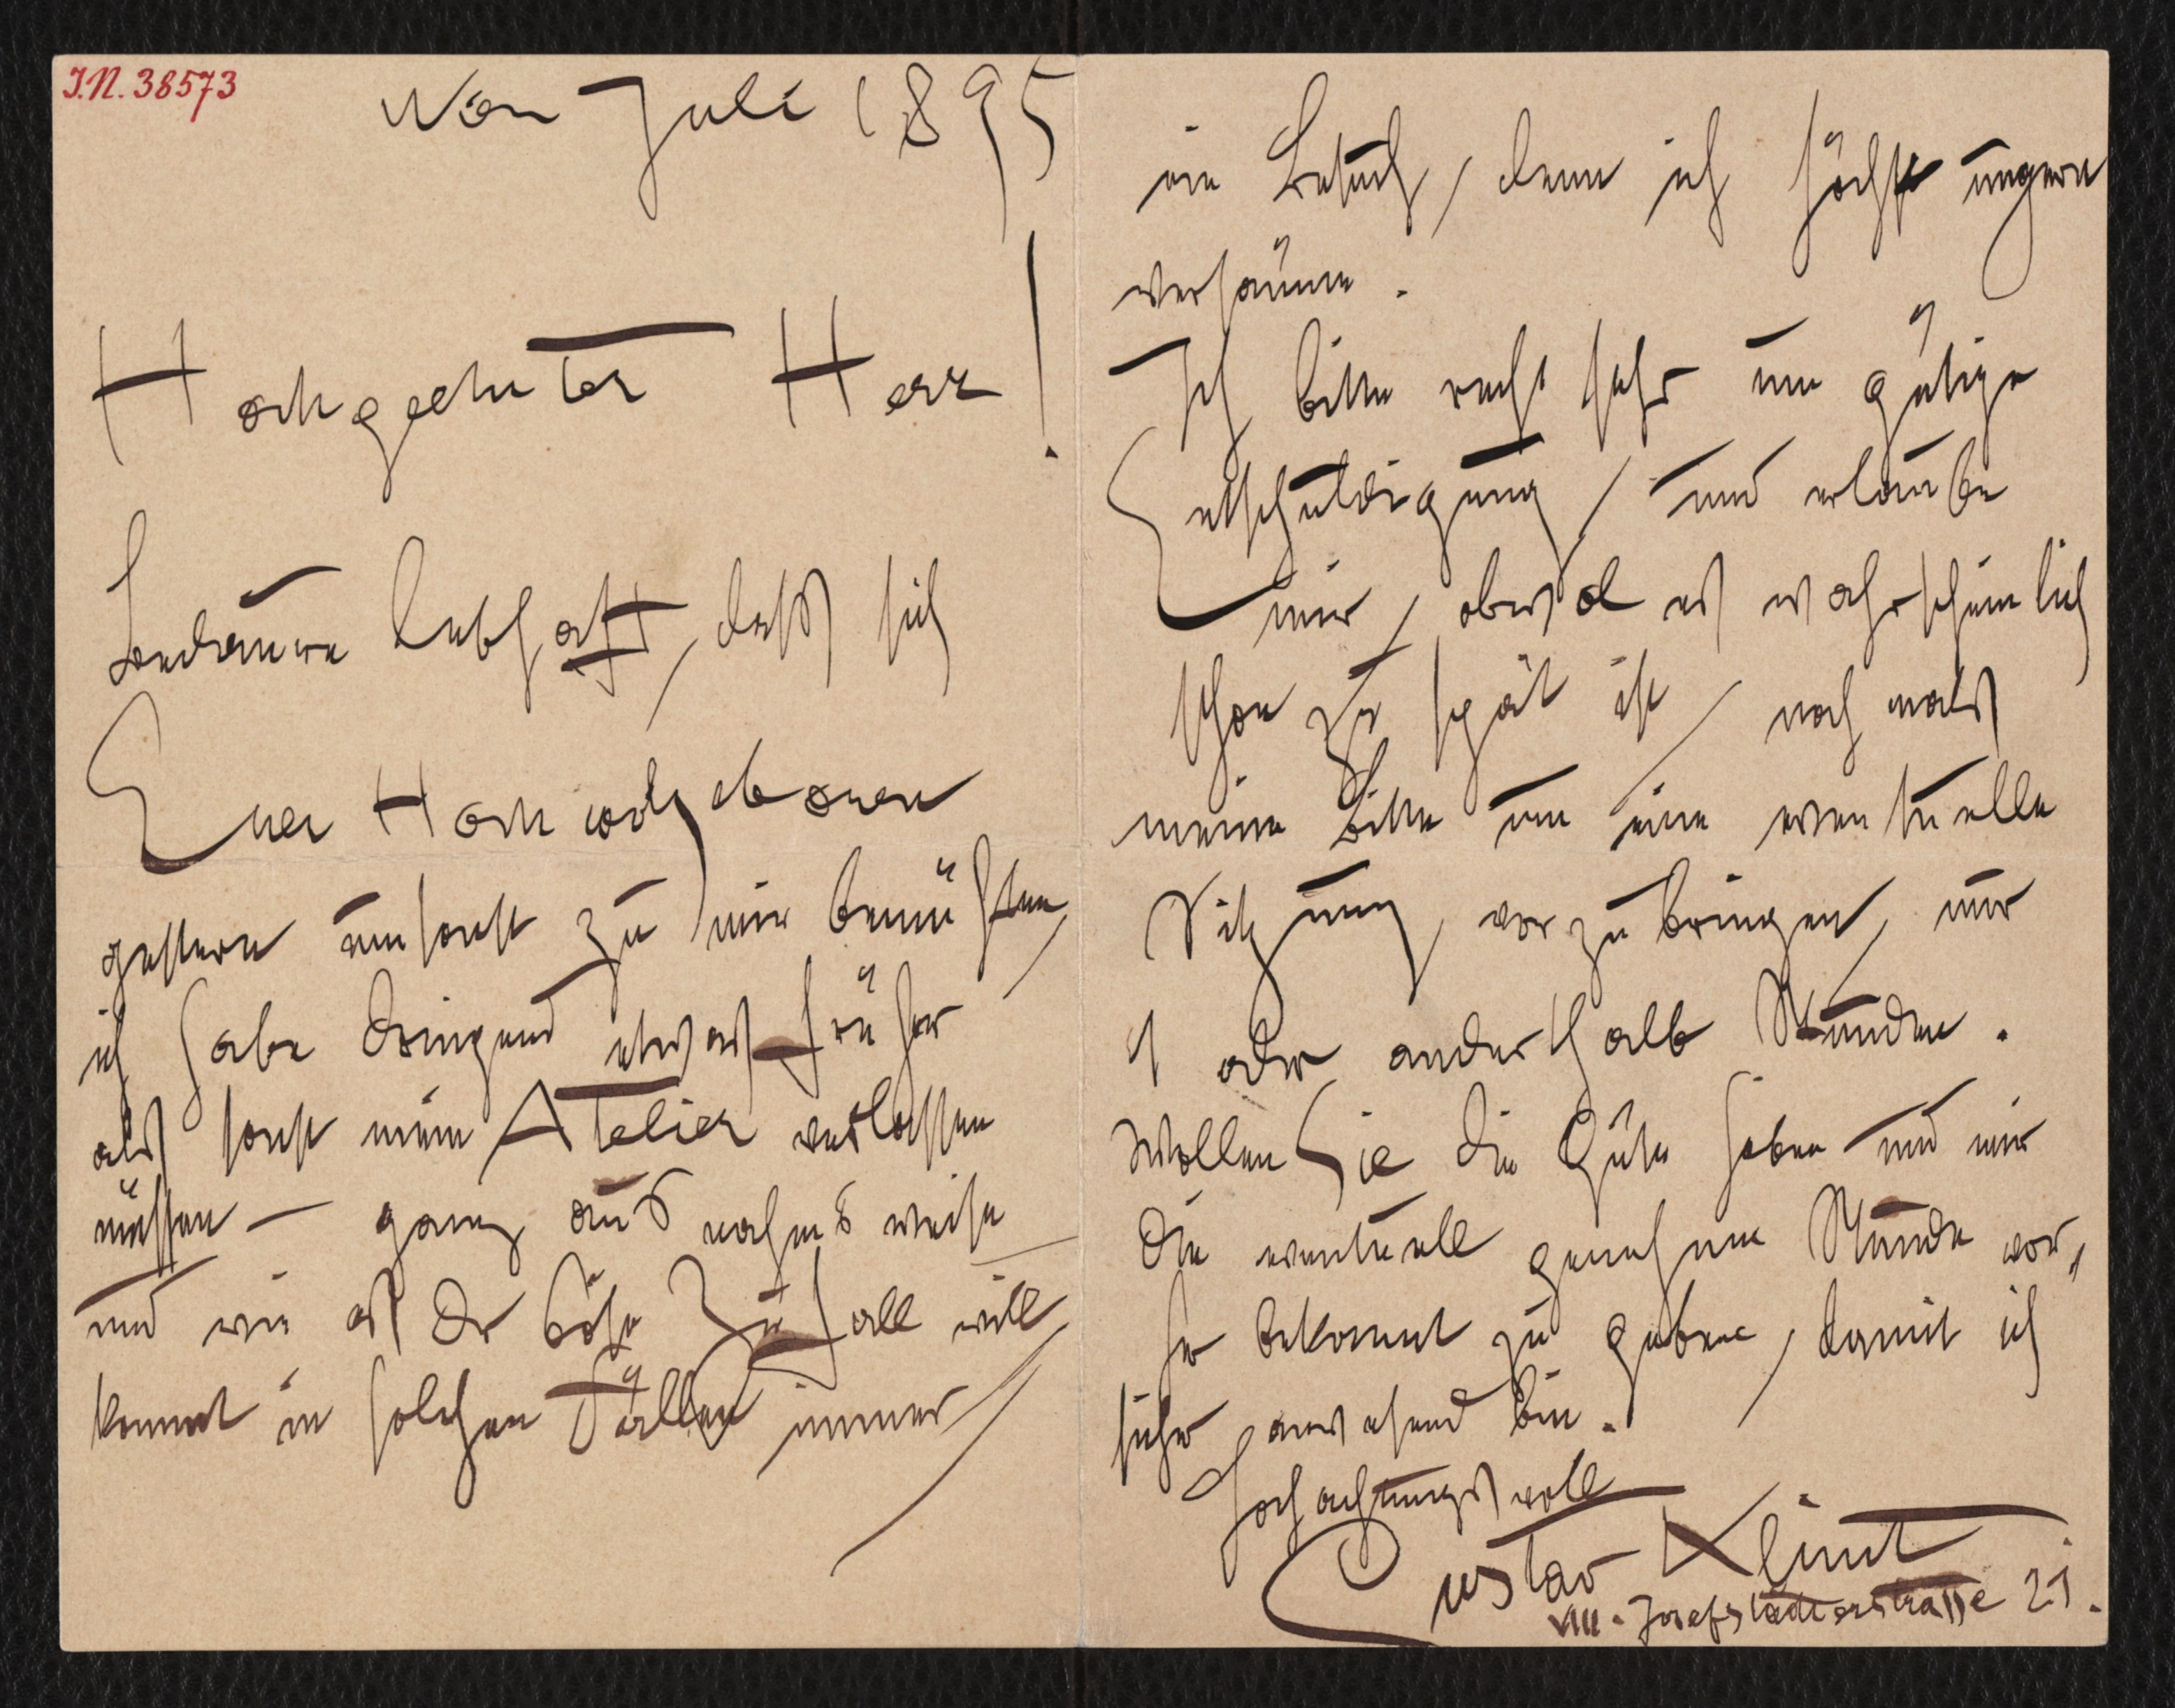 I.N. 38573
Wien Juli 1895
Hochgeehrter Herr!
Bedauere lebhaft, dass sich
Euer Hochwolgeboren
gestern umsonst zu mir bemühten,
ich habe dringend etwas früher
als sonst mein Atelier verlassen
müssen – ganz ausnahmsweise –
und wie es der böse Zufall will,
kommt in solchen Fällen immer
ein Besuch, denn ich höchst ungern
versäume.
Ich bitte recht sehr um gütige
Entschuldigung, und erlaube
mir, obwol es wahrscheinlich
schon zu spät ist, nochmals
meine Bitte um eine eventuelle
Sitzung, vorzubringen, nur
1 oder anderthalb Stunden.
Wollen Sie die Güte haben und mir
die eventuell genehme Stunde vor„
her bekannt zu geben, damit ich
sicher anwesend bin.
Hochachtungsvoll
Gustav Klimt
VIII. Josefstädterstrasse 21.